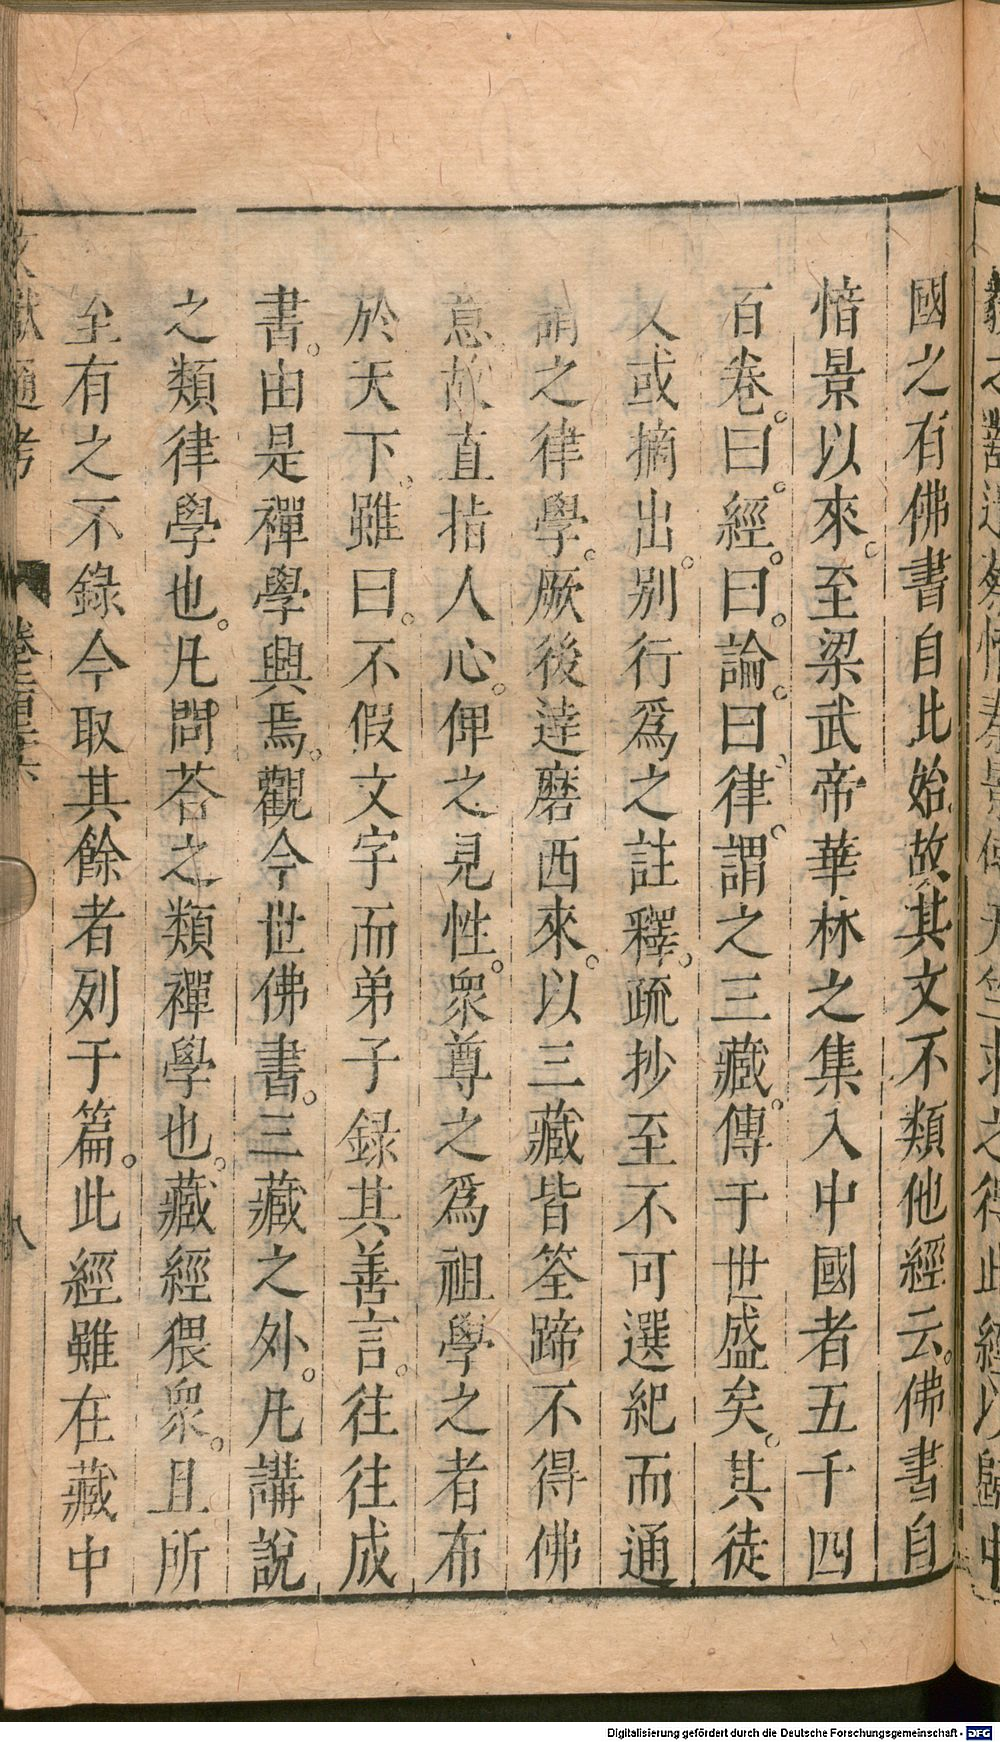 國之有佛書自此始故其文不類他經云。佛書自
愔景以來。至梁武帝華林之集入中國者五千四
百卷。曰。經。曰。論。曰。律。謂之三藏。傳于世盛矣。其徒
又或摘出。别行爲之註釋。疏抄至不可選紀而通
謂之律學。厥後達磨西來。以三藏皆筌蹄不得佛
意。故直指人心。俾之見性。衆尊之爲祖學之者布
於天下。雖曰。不假文字而弟子錄其善言。往往成
書。由是禪學興焉。觀今世佛書。三藏之外。凡講說
之類律學也。凡問荅之類禪學也。藏經猥衆。且所
至有之不錄今取其餘者列于篇。此經雖在藏中
文獻通考 卷二百二十六 八
Digitalisierung gefördert durch die Deutsche Forschungsgemeinschaft - DFG